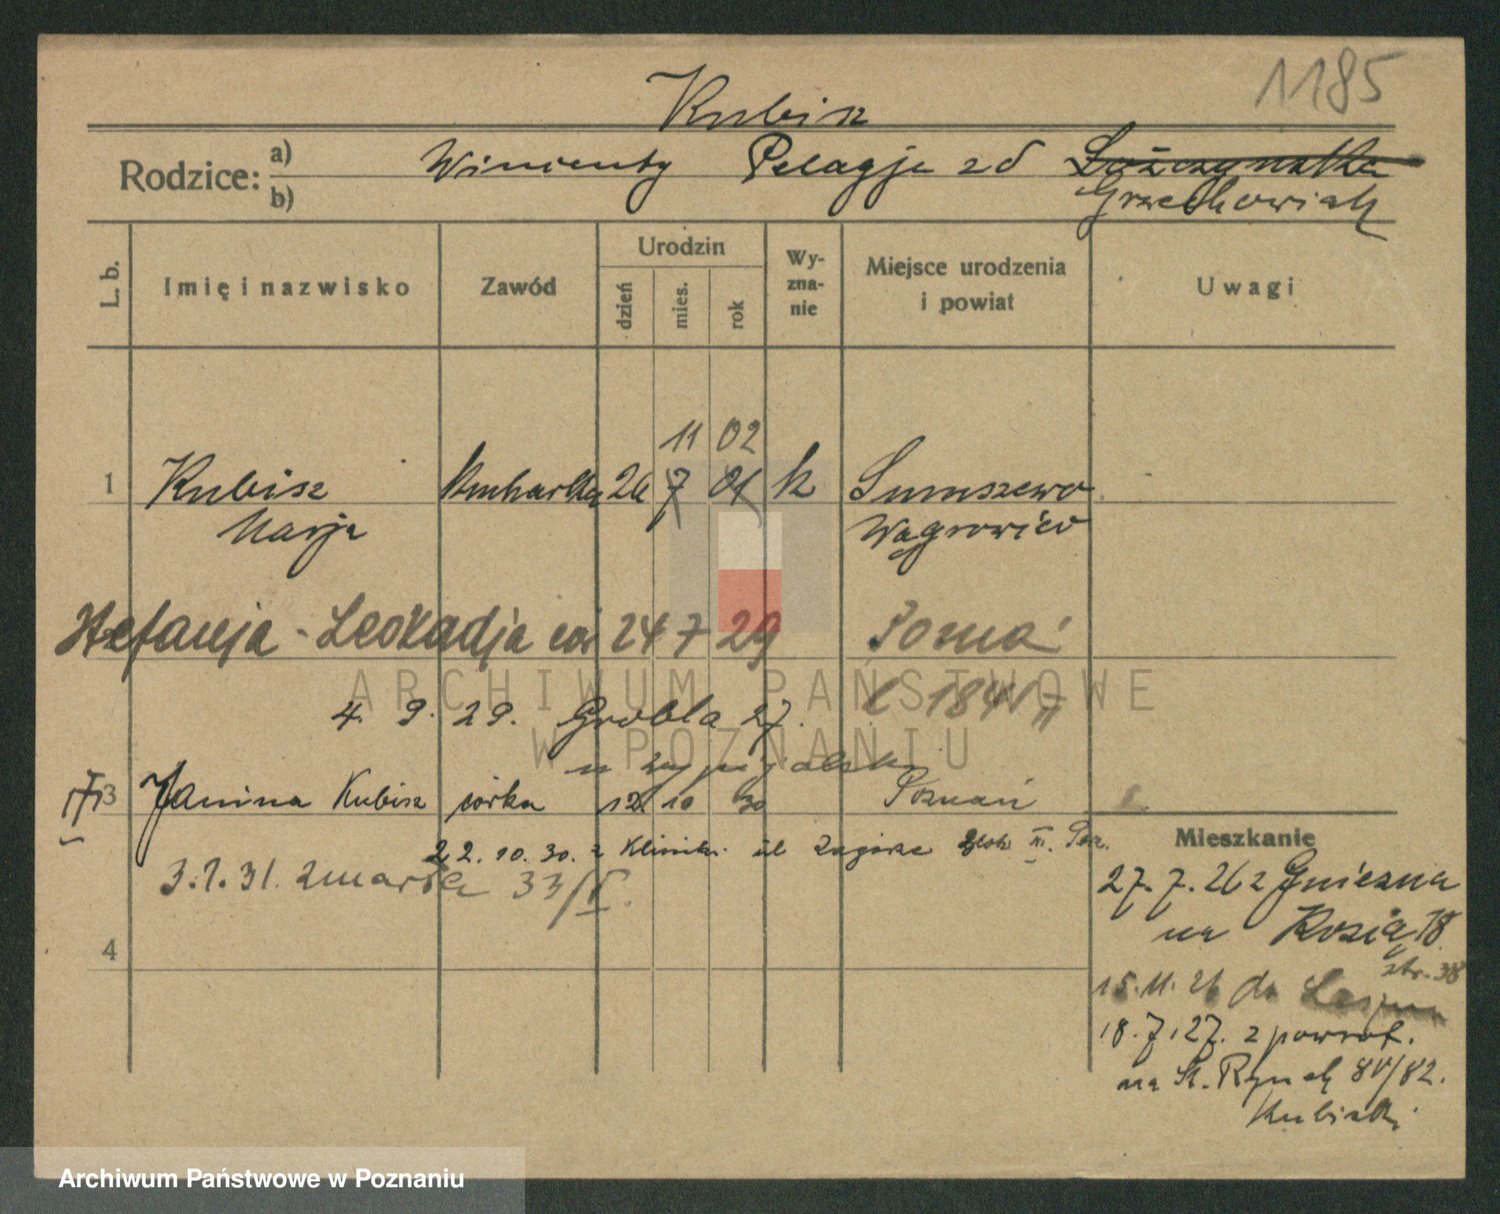 1185
Kubisz
Rodzice: a) b)
Wincenty Pelagja zd Łożczynatka
Grzechowiak
L. b.
Imię i nazwisko
Zawód
Urodzin
dzień
mies.
rok
Wy-
zna-
nie
Miejsce urodzenia
i powiat
Uwagi
11 02
1 Kubisz kucharka 26 7 01 k
Marja Wągrowiec
Stefanja - Leokadja 24 7 29
4. 9. 29. Grobla 27.
3 Janina Kubisz córka 12 10 30 Poznań
22. 10. 30. z Kliniki ul
3. 1. 31. zmarła 33/I.
4
Mieszkanie
27. 7. 26 z Gniezna
na Kozią 18
str. 38
15. 11. 26 do
18. 7. 27. z powrot.
na St. Rynek 80/82.
Kubiski
ARCHIWUM PAŃSTWOWE
W POZNANIU
Archiwum Państwowe w Poznaniu